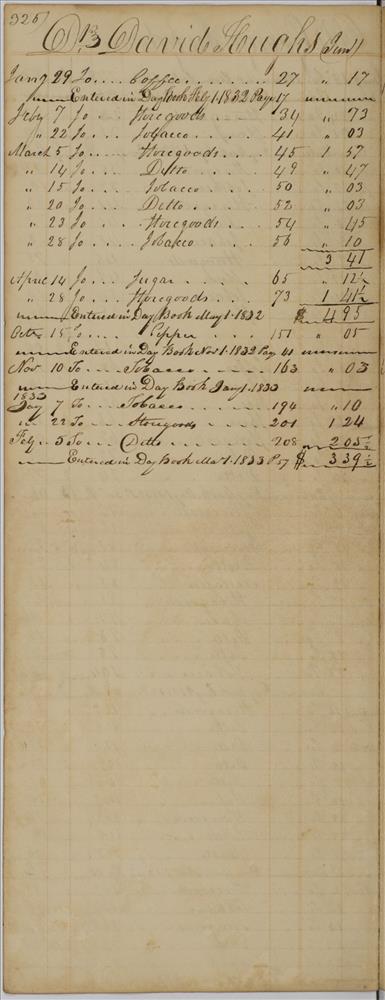 326
Dr David Hughs (Jun)
Jany 29 To .... Coffee ....... 27 " 17
Entered in Day Book Feb 1. 1832 Page 17
Feby 7 To .. Storegoods ... 34 " 73
" 22 To .... Tobacco .... 41 " 03
March 5 To .... Storegoods ... 45 1 57
" 14 To ..... Ditto .... 49 " 47
" 15 To .... Tobacco .... 50 " 03
" 20 To .... Ditto .... 52 " 03
" 23 To .... Storegoods ... 54 " 45
" 28 To .... Tobacco .... 56 " 10
3 41
April 14 To .... Sugar .... 65 " 12½
" 28 To .... Storegoods ... 73 1 41½
Entered in Day Book May 1. 1832 $ 4 95
Octr 15 To .... Pepper .... 151 " 05
Entered in Day Book Novr 1. 1832 Pag 41
Nov 10 To .... Tobacco .... 163 " 03
Entered in Day Book Jany 1. 1833
1833
Jay 7 To .... Tobacco .... 194 " 10
" 22 To .... Storegoods .... 201 1 24
Feby 5 To .... Ditto .... 208 2 05½
Entered in Day Book Mar 1. 1833 P 57 $ 3 39½